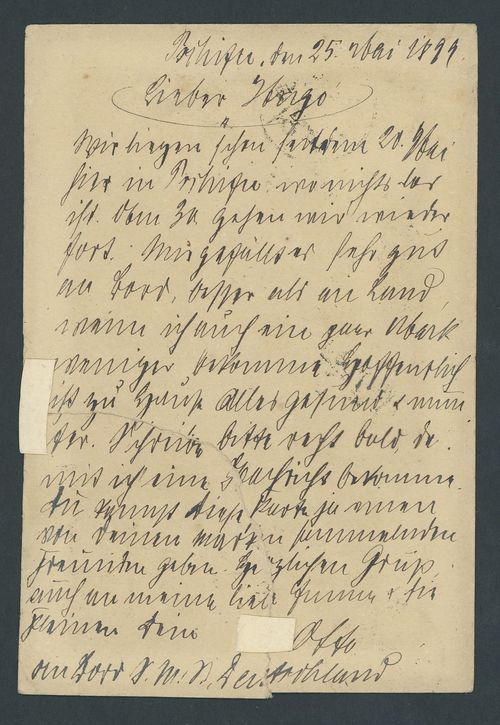 den 25. Mai 1899.
Lieber Hugo
Wir liegen schon seit dem 20. Mai
hier in wo nichts los
ist. Am 30. gehen wir wieder
fort. Mir gefällt es sehr gut
an Bord, besser als an Land,
wenn ich auch ein paar Mark
weniger bekomme. Hoffentlich
ist zu Hause Alles gesund & mun
ter. Schreibe bitte recht bald, da
mit ich eine Nachricht bekomme.
Du kannst diese Karte ja einen
von Deinen Marken sammelnden
Freunden geben. Herzlichen Gruß
auch an meine liebe & die
Kleinen Dein Otto
an Bord S. M. S. Deutschland